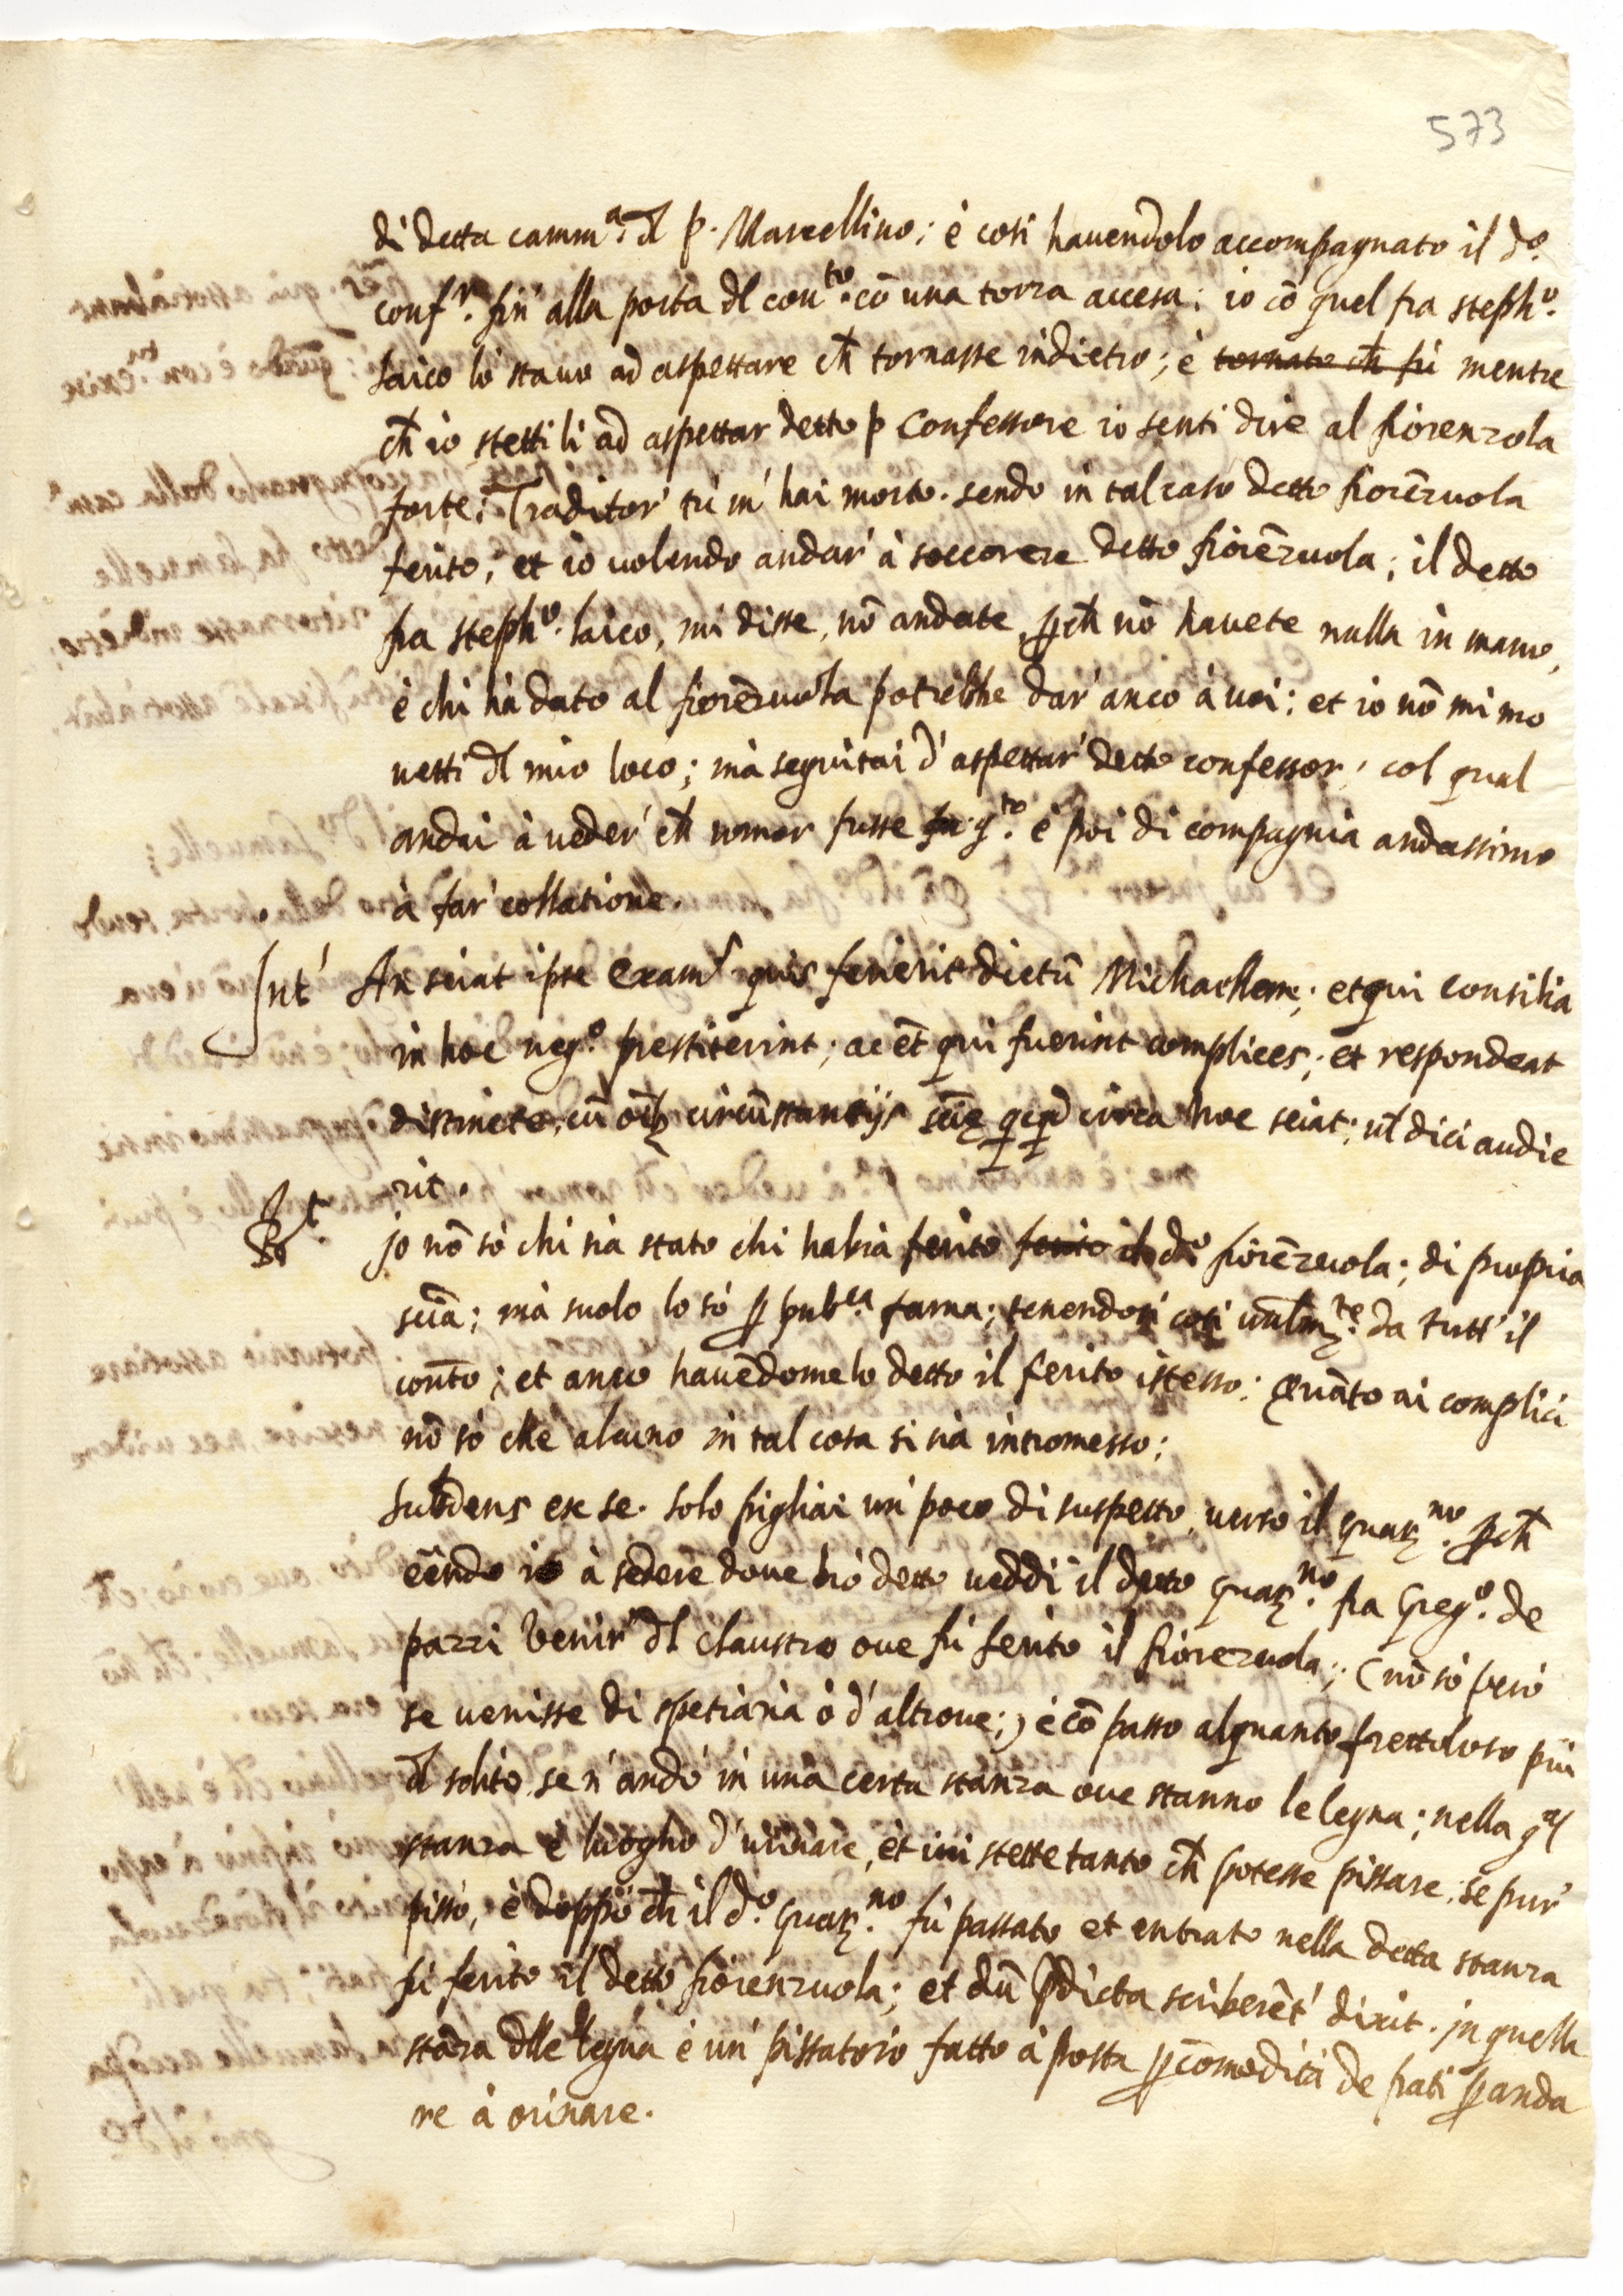 573
di detta camm.ª dl p. Marcellino; è cosi hauendolo accompagnato il d.º
conf.r fin' alla porta dl con.to cō una torza accesa; io cō quel fra steph.º
laico lo stauo ad aspettare ch̄ tornasse indietro; è tornato ch̄ fù mentre
ch̄ io stetti li ad aspettar detto p Confessore io senti dire al fiorenzola
forte; Traditor' tù m' hai morto. sendo in tal caso detto fiorēzuola
ferito; et io uolendo andar' à soccorere detto fiorēzuola; il detto
fra steph.º laico, mi disse, nō andate, ꝑch̄ nō hauete nulla in mano,
è chi hà dato al fiorēzuola potrebbe dar' anco à uoi: et io nō mi mo
uetti dl mio loco; mà seguitai d' aspettar' detto confessor, col qual
andai à ueder' ch̄ romor fusse q.to è poi di compagnia andassimo
à far' collatione.
Int' An sciat ipse Exam.s quis ferierit dictū Michaellem; et qui consilia
in hoc neg.º prestiterint; ac ēt qui fuerint complices; et respondeat
distincte, cū oīb circūstantijs scīę qcqd circa hoc sciat; ul dici audie
rit.
R.t jo nō sò chi sia stato chi habia ferito ferito il d.º fiorēzuola; di propria
scīa; mà suolo lo sò ꝑ pub.ca fama; tenendosi cosi unlm.te da tutt' il
conto; et anco hauēdomelo detto il ferito istesso: Quāto ai complici
nō sò che alcuno in tal cosa si sia intromesso;
Subdens ex se. solo pigliai un' poco di suspetto, uerso il Guar.no ꝑch̄
eēndo io à sedere doue hò detto ueddi il detto Guar.no fra Greg.º de
pazzi venir' dl claustro oue fù ferito il fiorezuola; (nō sò però
se uenisse di spetiaria ò d' altroue;) è cō passo alquanto frettoloso più
dl solito, se n' andò in una certa stanza oue stanno le legna; nella q.al
stanza è luogho d' urinare, et iui stette tanto ch̄ potesse pissare, se pur'
pissò, è doppò ch̄ il d.º Guar.no fù passato et entrato nella detta stanza
fù ferito il detto fiorenzuola; et dū p̄dicta scriberēt' dixit. jn quella
stāza dlle legna è un' pissatoio fatto à posta ꝑ comodità de frati ꝑ anda
re à orinare.